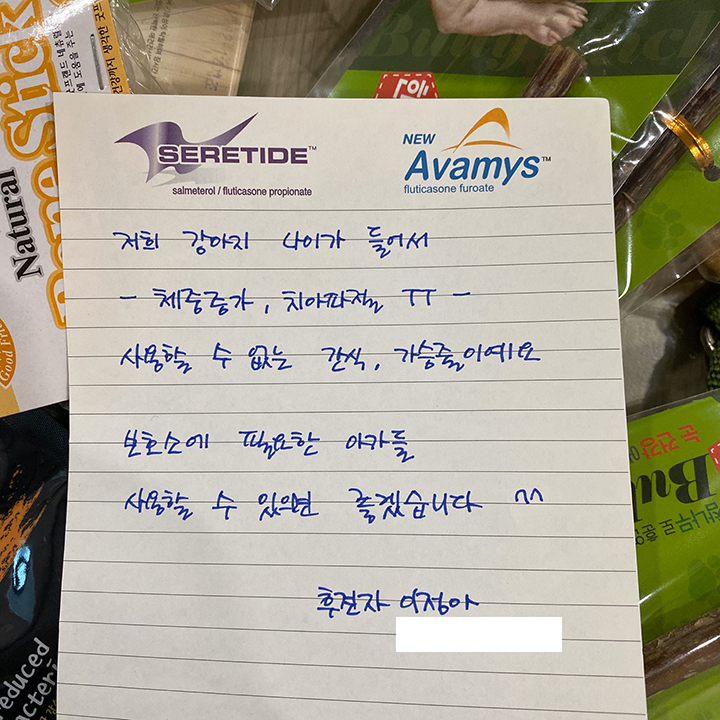 Natural
Bone Stick
SERETIDE™
salmeterol / fluticasone propionate
NEW
Avamys™
fluticasone furoate
저희 강아지 나이가 들어서
- 체중증가, 치아파절 ㅜㅜ -
사용할 수 없는 간식, 가슴줄이예요
보호소에 필요한 아가들
사용할 수 있으면 좋겠습니다 ^^
후견자 이정아
눈 건강
educed